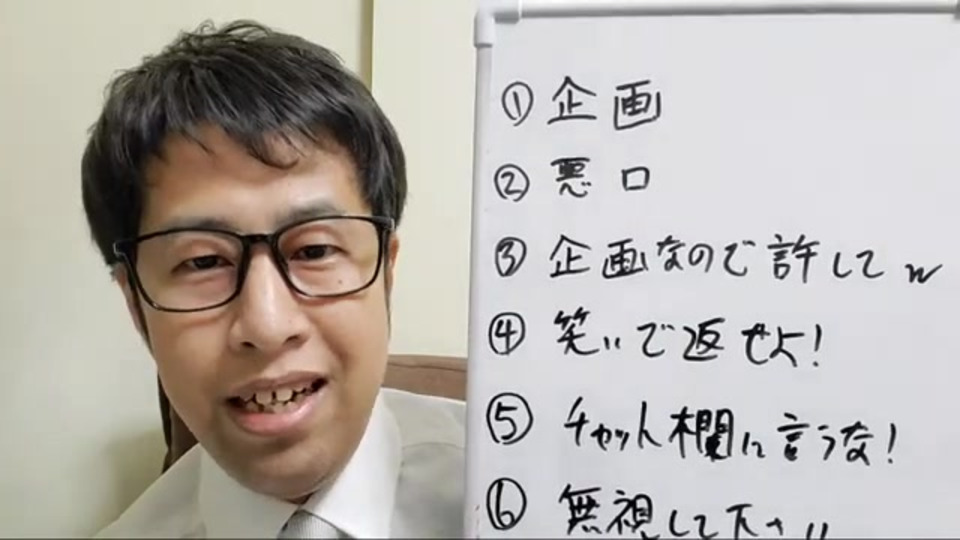 ① 企画
② 悪口
③ 企画なので許してw
④ 笑いで返せよ!
⑤ チャット欄に言うな!
⑥ 無視して下さい